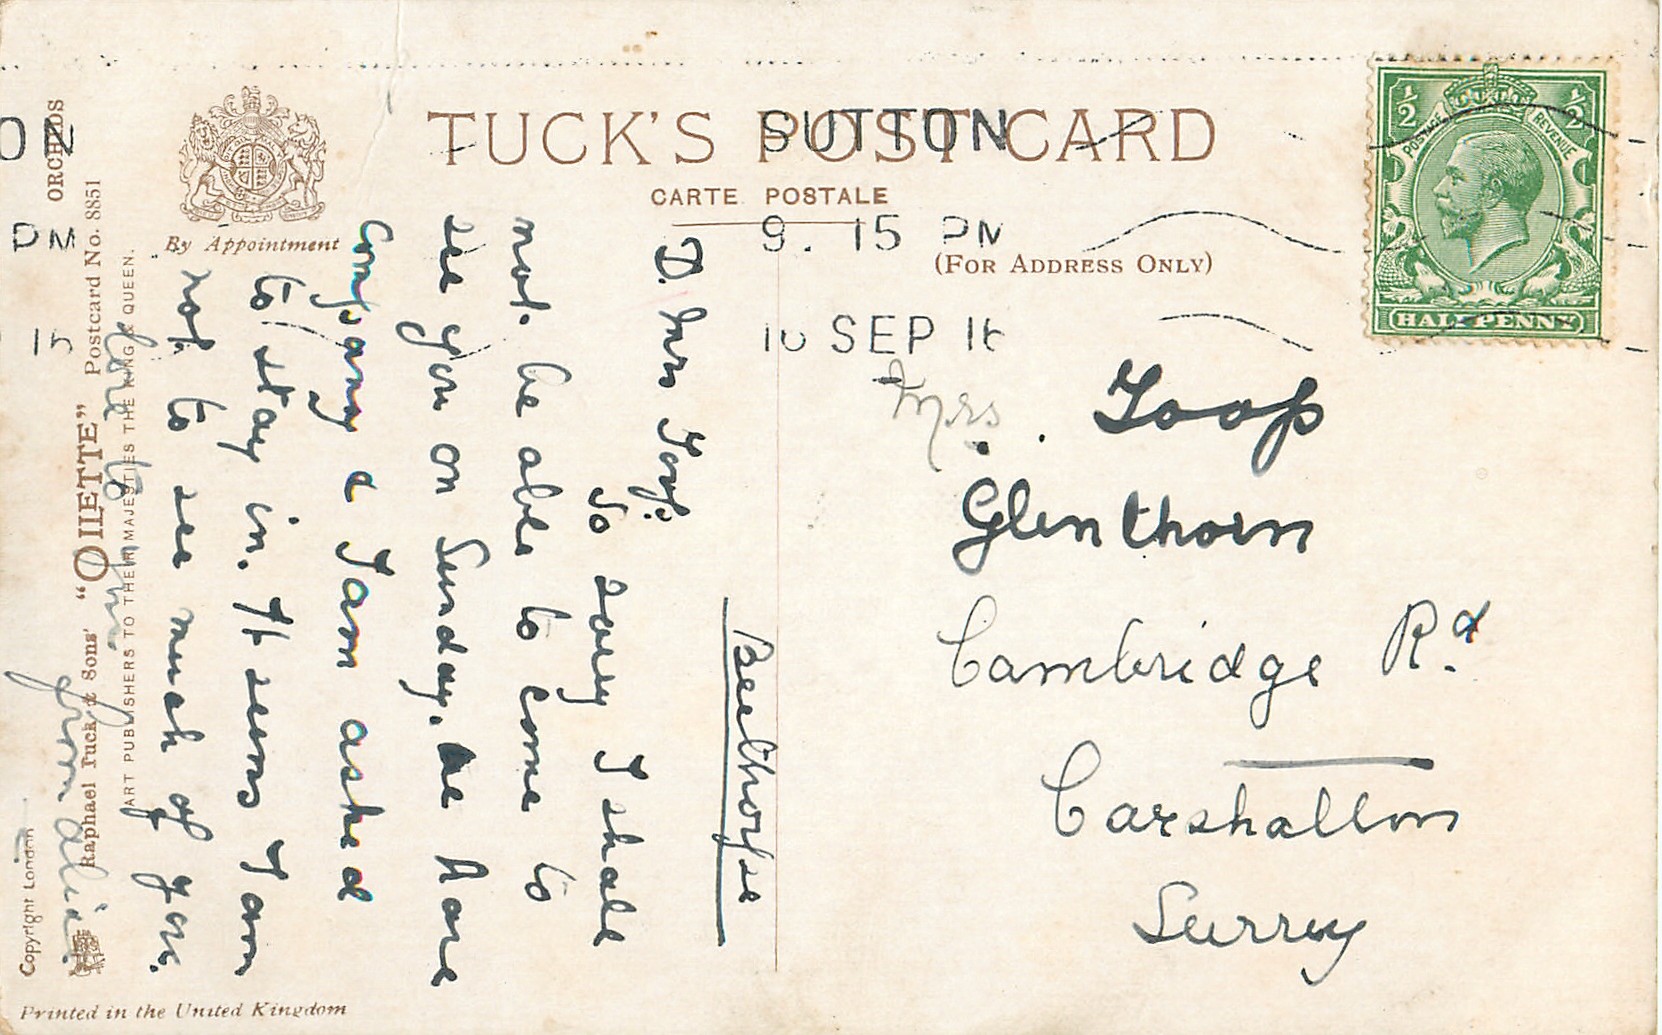 TUCK'S POST CARD
CARTE POSTALE
(FOR ADDRESS ONLY)
By Appointment
SUTTON
9. 15 PM
SEP
ON
PM
15
POSTAGE
REVENUE
½
½
HALFPENNY
Mrs Toop
Glenthorn
Cambridge Rd.
Carshalton
Surrey
Beethorpe
D. Mrs Toop.
So sorry I shall
not be able to come to
see you on Sunday. We have
company & I am asked
to stay in. It seems I am
not to see much of you.
Love to
from Alice.
ART PUBLISHERS TO THEIR MAJESTIES THE KING & QUEEN.
Raphael Tuck & Sons' "OILETTE" Postcard No. 8851
ORCHIDS
Copyright London
Printed in the United Kingdom